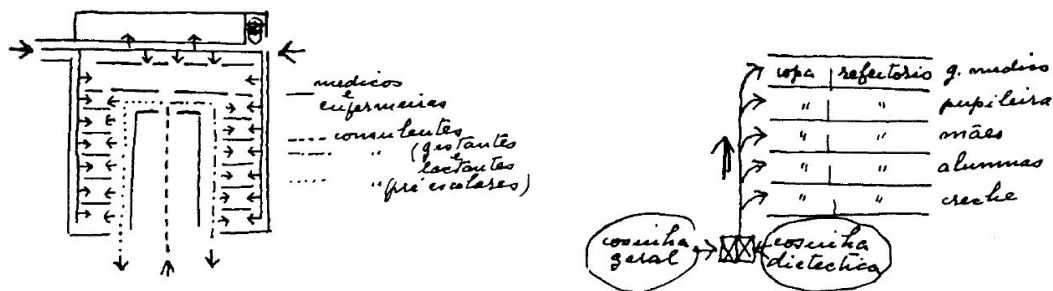 medicos
e
enfermeiras
consulentes
" (gestantes
e
lactantes
" pré escolares)
copa refeitorio g. medico
" " pupileira
" " mães
" " alumnas
" " creche
cosinha
geral
cosinha
dietectica